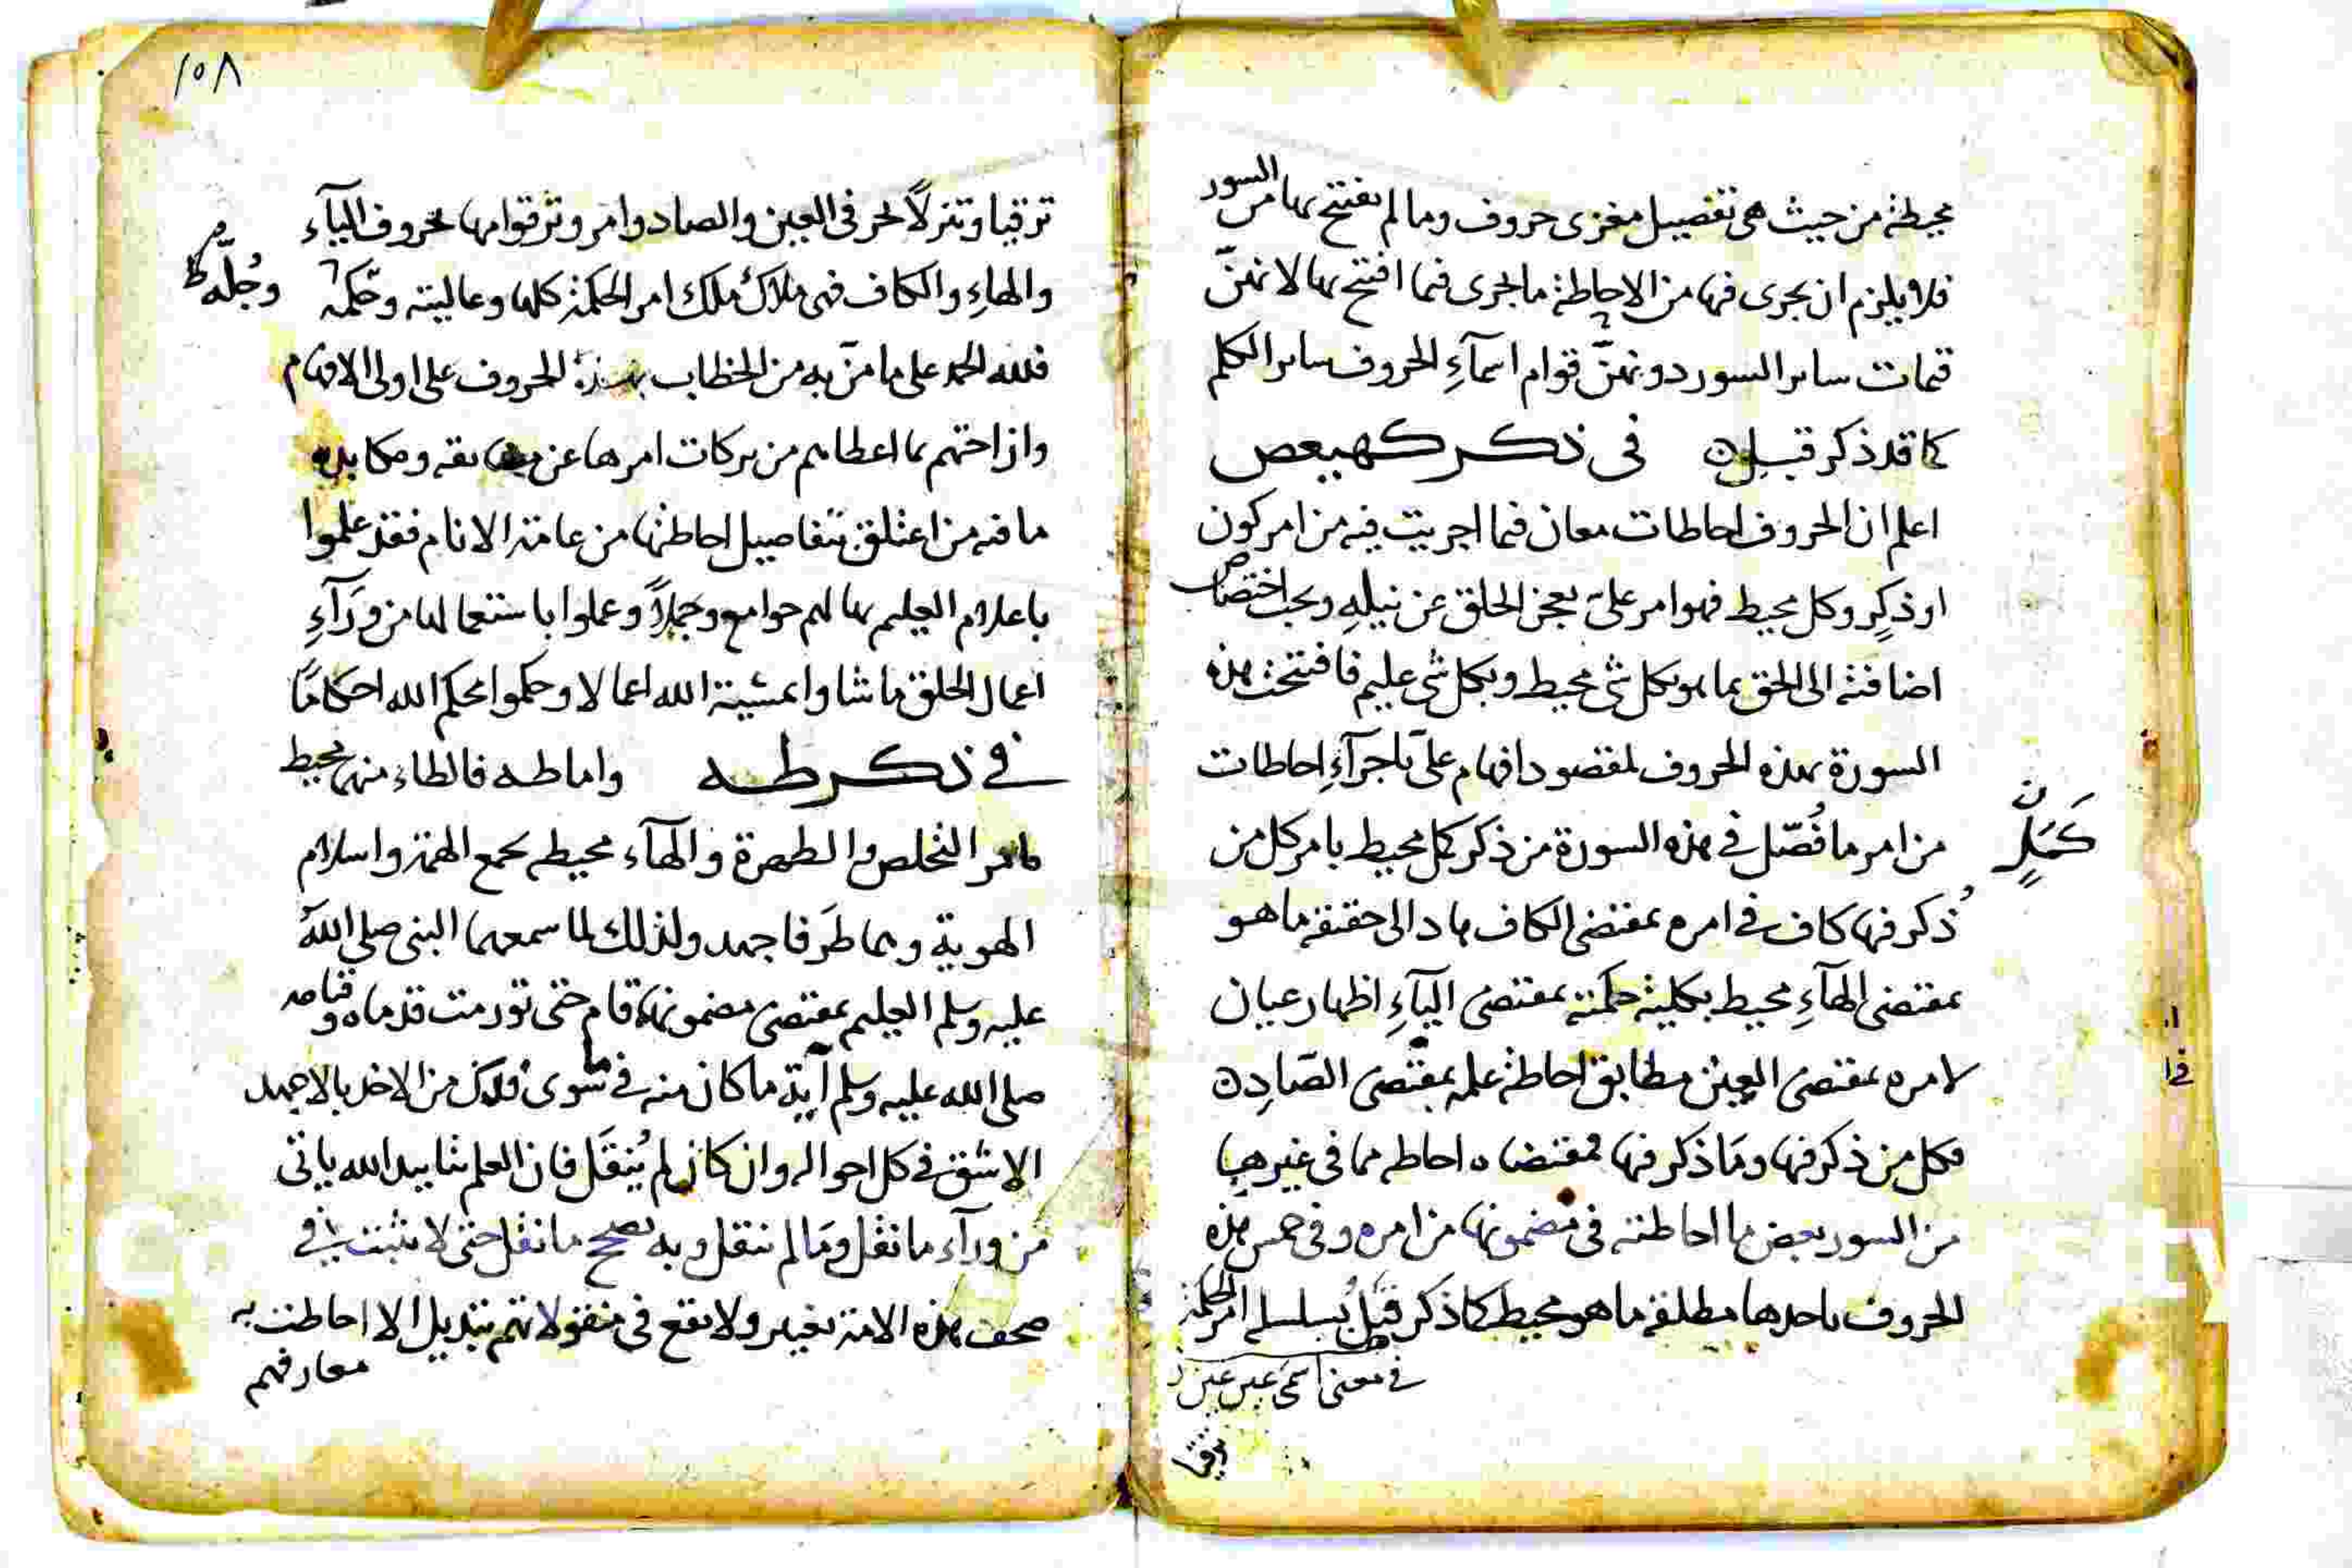 محيطة من حيث هى تفصيل مغزى حروف وما لم يفتتح بها من السور
فلا يلزم ان يجرى فيها من الاحاطة ما يجرى فيما افتتح بها لانهنّ
قيمات ساير السور دونهنّ قوام اسمآءِ الحروف ساير الكلم
كما قد ذكر قبل فى ذكر كهيعص
اعلم ان الحروف احاطات معان فيما اجريت فيه من امر كون
او ذكرٍ وكل محيط فهو امر علىّ يعجز الخلق عن نيلهِ ويجب اختصاص
اضافته الى الحق بما هو بكل شى محيط وبكل شى عليم فافتتحت هذه
السورة بهذه الحروف لمقصود افهام علىّ باجرآءِ احاطات
كَمَلٍ
من امر ما فُصّل فى هذه السورة من ذكر كل محيط بامر كل من
ذُكر فيها كاف فى امره بمقتضى الكاف هاد الى حقيقة ما هو
بمقتضى الهآءِ محيط بكلية حكمته بمقتضى اليآءِ اظهار عيان
لامره بمقتضى العين مطابق احاطة علمه بمقتضى الصّادِ
فكل من ذكر فيها ومَا ذكر فيها فمقتضاه احاطه مما فى غيرها
من السور بعض ما احاطته فى مضمونها من امره وفى خمس هذه
الحروف باحدها مطلقه ما هو محيط كما ذكر قبل بسلسله امر الحكمة
فى معنى اسمى عين عين
ترقيا
١٠٨
ترقيا وتنزلاً لحرفى العين والصاد وامر وترقوامها بحروف اليآء
والهاءِ والكاف فهى ملاك ملك امر الحكمة كلها وعاليته وحكمه
وجُلّه
فلله الحمد على ما منّ به من الخطاب بهذه الحروف على اولى الافهام
وازاحتهم بما اعطاهم من بركات امرها عن
ما فيه من اعتلق بتفاصيل احاطتها من عامة الانام فقد علموا
باعلام العليم بها لهم جوامع وجملاً وعملوا باستعمالها من ورَآءِ
اعمال الخلق ما شاوا بمشيئة الله اعمالا وحكموا بحكم الله احكامًا
فى ذكر طه واما طه فالطاء منها محيط
بامر التخلص والطهرة والهآء محيطه بجمع الهمة واسلام
الهوية وهما طرَفا جهد ولذلك لما سمعهما النبى صلى الله
عليه وسلم العليم بمقتضى مضمونها قام حتى تورمت قدماه وقيامه
صلى الله عليه وسلم آيةِ ما كان منه فى سوى ذلك من الاخذ بالاجهد
الاشق فى كل احواله وان كان لم يُنقَل فان العلم بتاييد الله ياتى
من ورآء ما نقل ومَا لم ينقل وبه يصحح ما نقل حتى لا يثبت فى
صحف هذه الامة تغيير ولا يقع فى منقولاتهم تبديل الا احاطت به
معارفهم